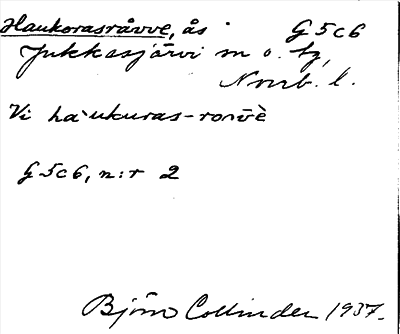 Haukorasråvve, ås G5c6
Jukkasjärvi sn o. tg,
Norrb. l.
Vi hàukuras-rov̄vè
G5c6, n:r 2
Björn Collinder 1937.